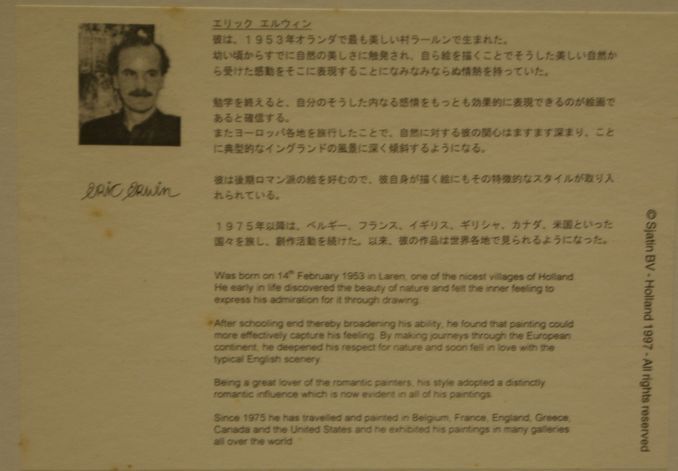 エリック エルウィン
彼は、1953年オランダで最も美しい村ラールンで生まれた。
幼い頃からすでに自然の美しさに触発され、自ら絵を描くことでそうした美しい自然か
ら受けた感動をそこに表現することになみなみならぬ情熱を持っていた。
勉学を終えると、自分のそうした内なる感情をもっとも効果的に表現できるのが絵画で
あると確信する。
またヨーロッパ各地を旅行したことで、自然に対する彼の関心はますます深まり、こと
に典型的なイングランドの風景に深く傾斜するようになる。
彼は後期ロマン派の絵を好むので、彼自身が描く絵にもその特徴的なスタイルが取り入
れられている。
1975年以降は、ベルギー、フランス、イギリス、ギリシャ、カナダ、米国といった
国々を旅し、創作活動を続けた。以来、彼の作品は世界各地で見られるようになった。
Eric Erwin
Was born on 14th February 1953 in Laren, one of the nicest villages of Holland
He early in life discovered the beauty of nature and felt the inner feeling to
express his admiration for it through drawing.
After schooling end thereby broadening his ability, he found that painting could
more effectively capture his feeling. By making journeys through the European
continent, he deepened his respect for nature and soon fell in love with the
typical English scenery.
Being a great lover of the romantic painters, his style adopted a distinctly
romantic influence which is now evident in all of his paintings.
Since 1975 he has travelled and painted in Belgium, France, England, Greece,
Canada and the United States and he exhibited his paintings in many galleries
all over the world
© Sjatin BV - Holland 1997 - All rights reserved